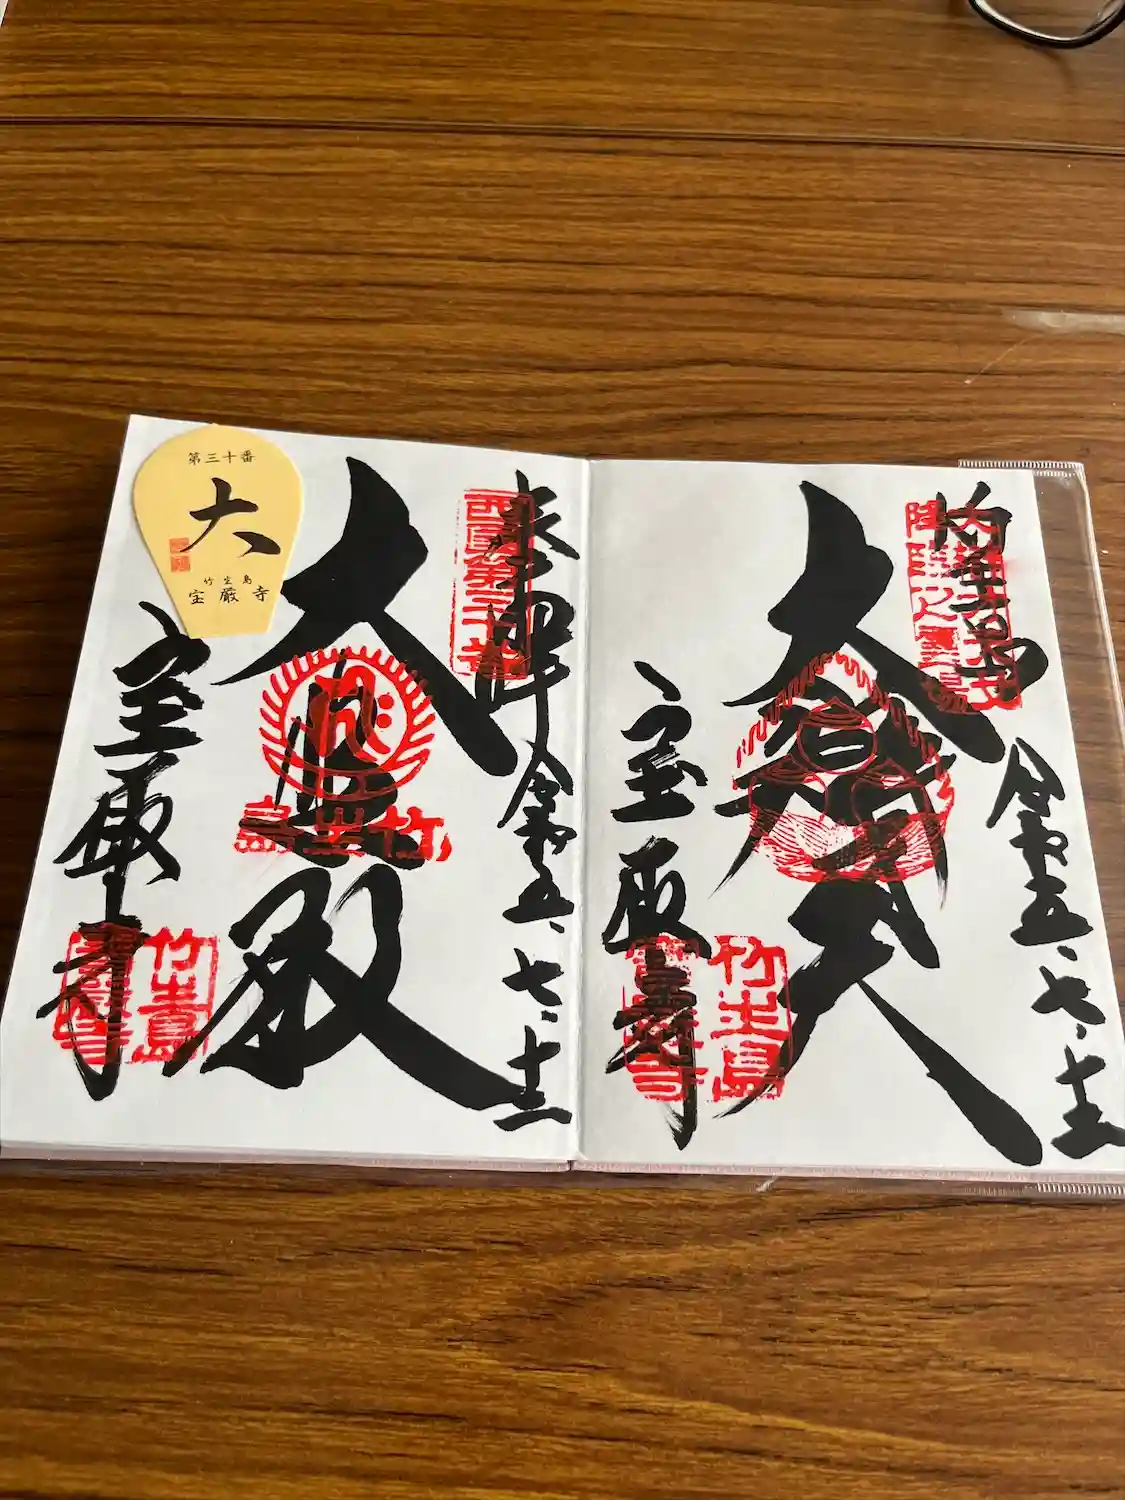 竹生島
令和五・七・十二
大辯天
宝厳寺
竹生島
宝厳寺
奉拝
西国第三十番
令和五・七・十二
大悲殿
竹生島
宝厳寺
竹生島
宝厳寺
第三十番
大
竹生島
宝厳寺